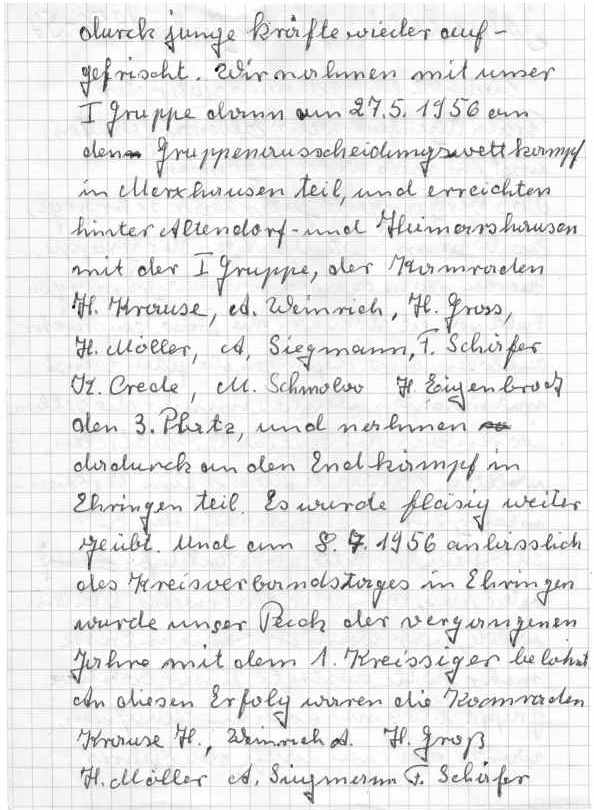 durch junge kräfte wieder auf-
gefrischt. Wir nahmen mit unser
I Gruppe dann am 27.5.1956 an
den Gruppenausscheidungswettkampf
in Merxhausen teil, und erreichten
hinter Altendorf- und Heimarshausen
mit der I Gruppe, der Kamraden
H. Krause, A. Weinrich, H. Gross,
H. Möller, A. Siegmann, F. Schäfer
K. Crede, M. Schmolov H. Eigenbrodt
den 3. Platz, und nahmen
dadurch an den Endkämpf in
Ehringen teil. Es wurde fleisig weiter
geübt. Und am 8.7.1956 anlässlich
des Kreisverbandstages in Ehringen
wurde unser Pech der vergangenen
Jahre mit dem 1. Kreissieger belohnt
An diesen Erfolg waren die Kamraden
Krause H., Weinrich A. H. Groß
H. Möller A. Siegmann F. Schäfer